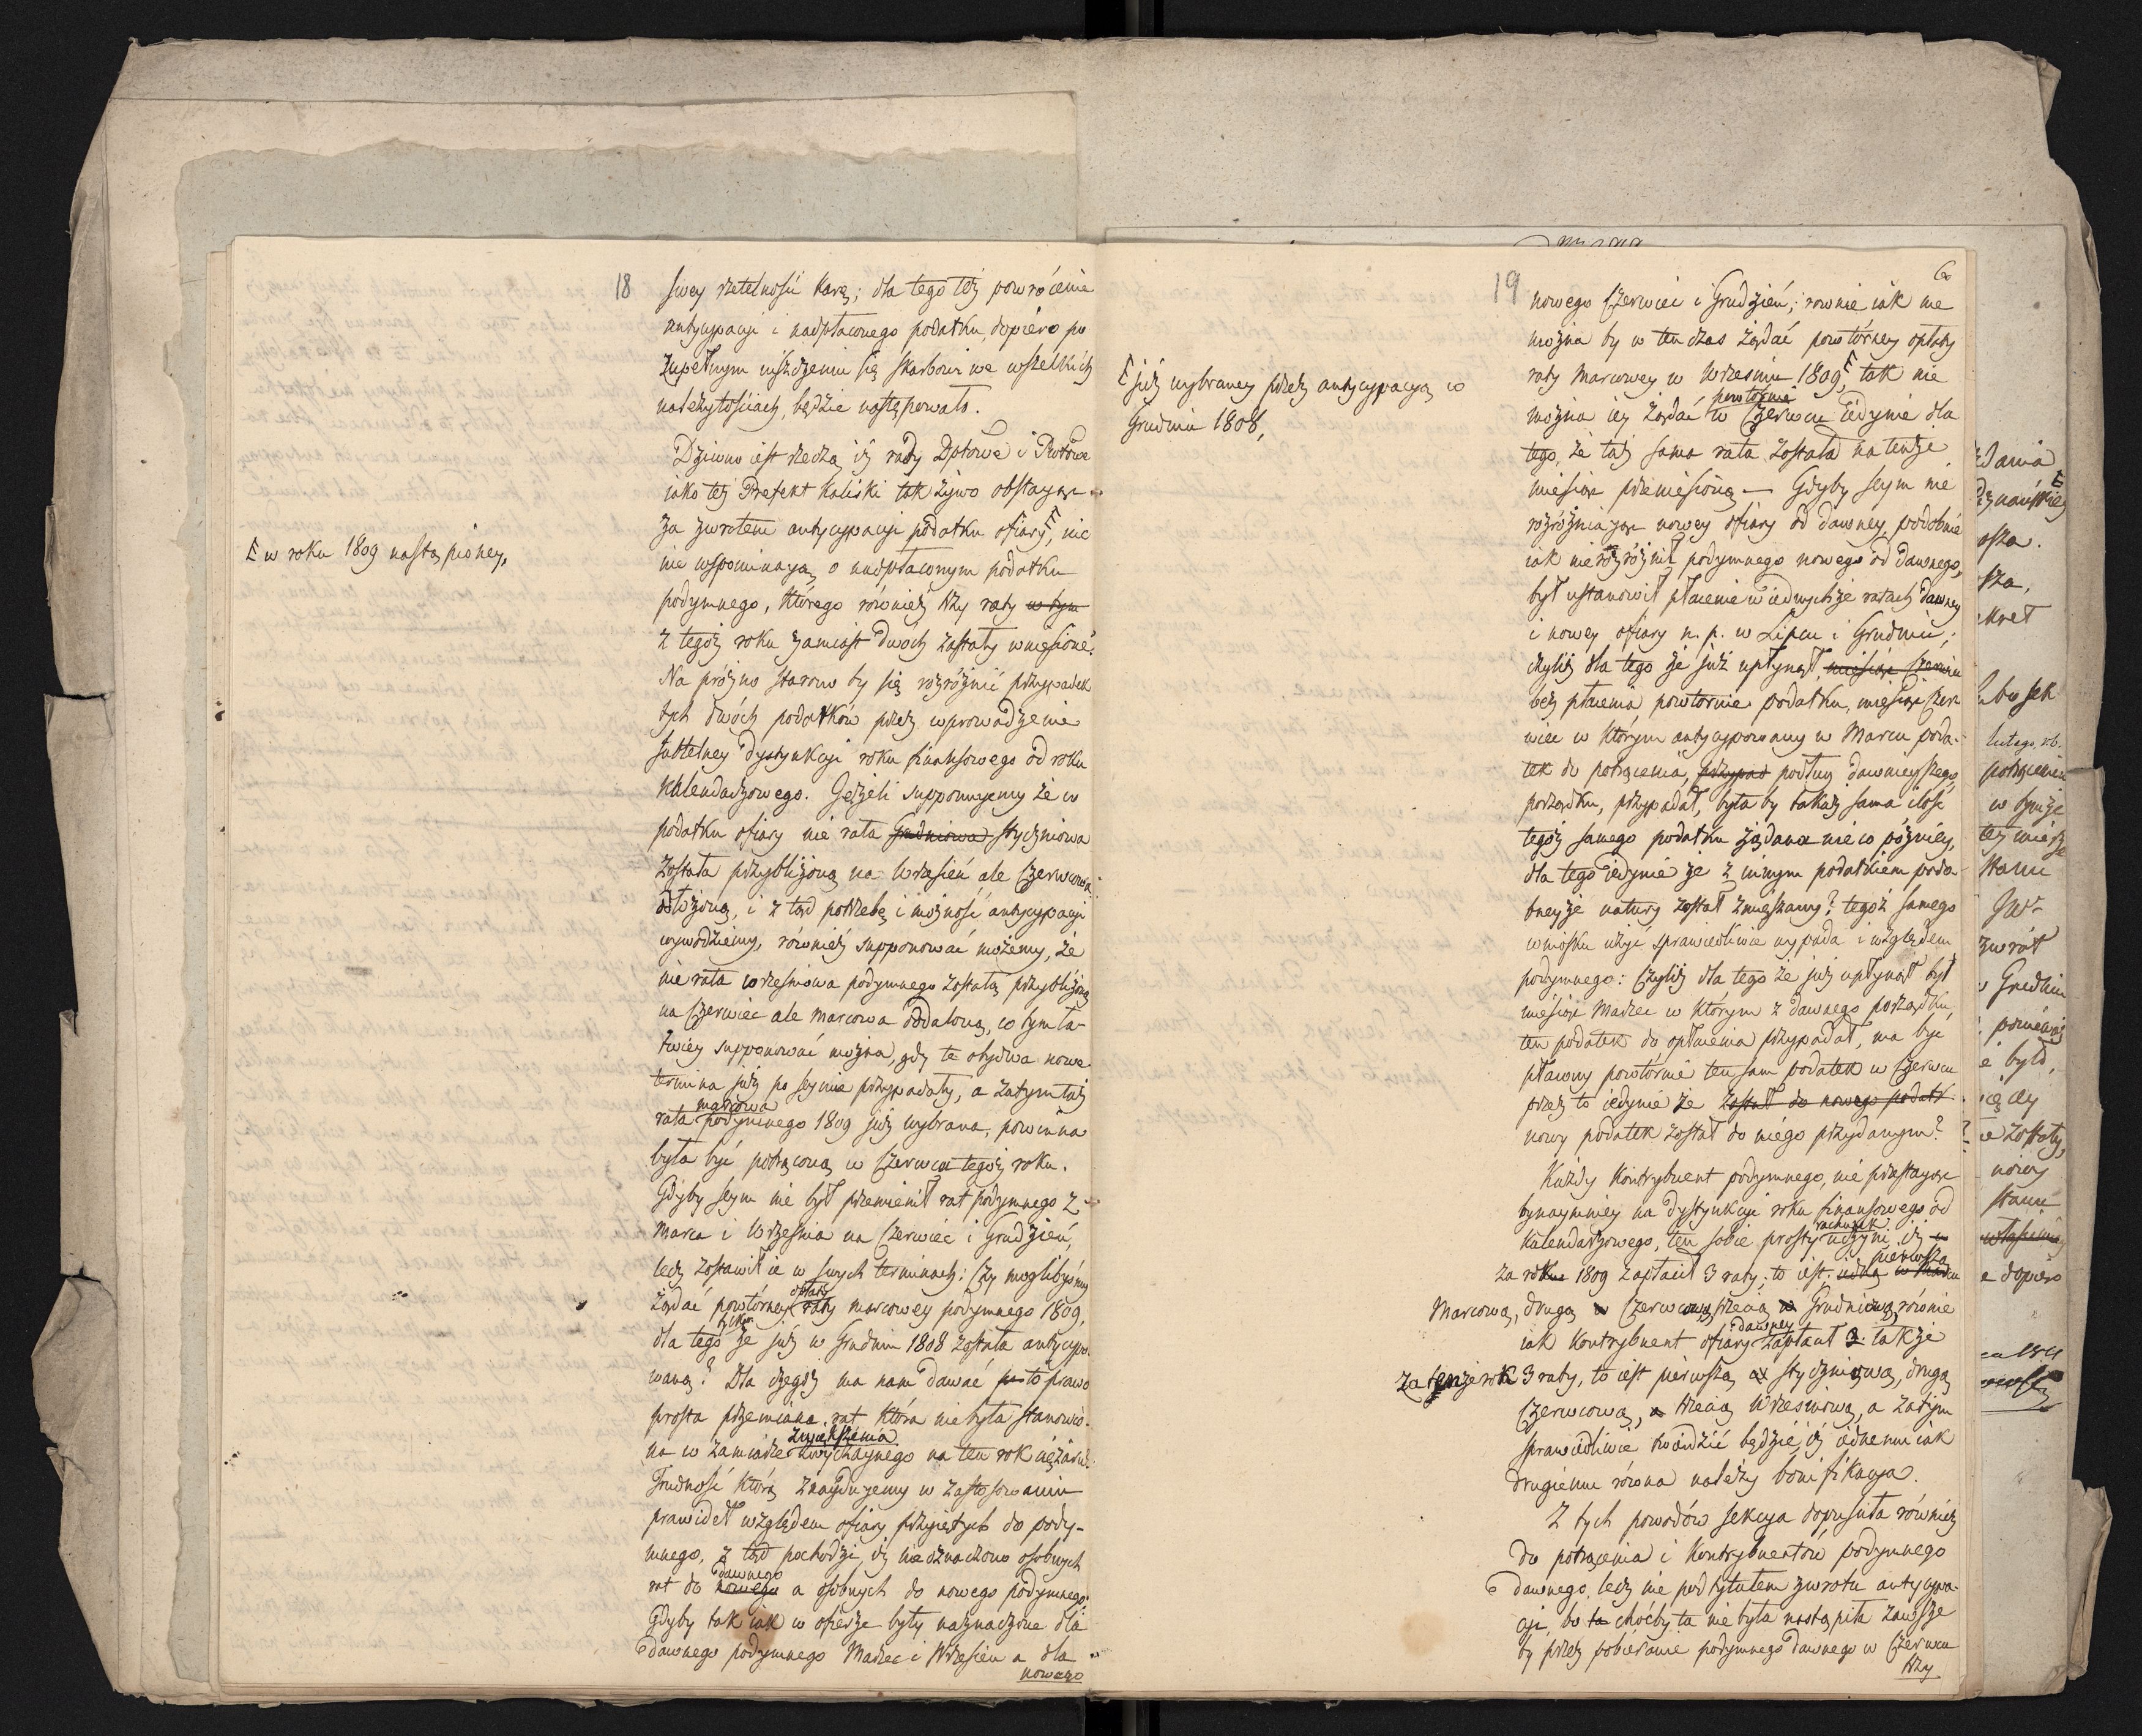 18
swey rzetelności karą; dla tego też powrócenie
antycypacji i nadpłaconego podatku, dopiéro po
zupełnym uiszczeniu się skarbowi we wszelkich
należytościach, będzie następowało.
Dziwno iest rzeczą iż rady Dptowe i Pwtowe
iako też Prefekt Kaliski tak żywo obstaiąc
za zwrotem antycypacji podatku ofiary, nic
[ w roku 1809 nastąpioney,
nie wspominaią o nadpłaconym podatku
podymnego, którego również trzy raty w tym
z tegoż roku zamiast dwóch zostały wniesione.
Na próżno starano by się rozróżnić przypadek
tych dwóch podatków przez wprowadzenie
subtelney dystynkcji roku finansowego od roku
kalendarzowego. Jeżeli supponuiemy że w
podatku ofiary nie rata Grudniowa styczniowa
została przybliżoną na Wrzesień ale Czerwcowa
odłożoną, i z tąd potrzebę i możność antycypacji
wywodziemy, również supponować możemy, że
nie rata wrześniowa podymnego została przybliżoną
na Czerwiec ale marcowa oddaloną, co tym ła-
twiey supponować można, gdy te obydwa nowe
termina już po seymie przypadały, a zatym taż
marcowa
rata podymnego 1809 już wybrana, powinna
była być potrąconą w Czerwcu tegoż roku.
Gdyby seym nie był przemienił rat podymnego z
Marca i Września na Czerwiec i Grudzień,
lecz zostawił ie w swych terminach: Czy moglibyśmy
opłaty
żądać powtórney raty marcowey podymnego 1809,
tylko
dla tego że już w Grudniu 1808 została antycypo-
waną? Dla czegoż ma nam dawać to prawo
prosta przemiana rat która nie była stanowio-
zwiększenia
na w zamiarze zwyczaynego na ten rok ciężaru.
Trudność którą znayduiemy w zastosowaniu
prawideł względem ofiary przyiętych do pody-
mnego, z tąd pochodzi, iż nieoznaczono osobnych
dawnego
rat do nowego a osobnych do nowego podymnego.
Gdyby tak iak w ofierze były naznaczone dla
dawnego podymnego Marzec i Wrzesień a dla
nowego
19
6
nowego Czerwiec i Grudzień; rownie iak nie
można by w ten czas żądać powtórney opłaty
raty Marcowey w Wrześniu 1809, tak nie
[ już wybraney przez antycypacyą w
Grudniu 1808,
powtórnie
można iey żądać w Czerwcu iedynie dla
tego, że taż sama rata została na tenże
miesiąc przeniesioną — Gdyby seym nie
rozróżniaiąc nowey ofiary od dawney, podobnie
iak nie rozróżnił podymnego nowego od dawnego,
był ustanowił płacenie w iednychże ratach dawney
i nowey ofiary n. p. w Lipcu i Grudniu;
czyliż dla tego że już upłynął miesiąc Czerwiec
bez płacenia powtornie podatku, miesiąc Czer-
wiec w którym antycypowany w Marcu poda-
tek do potrącenia, przypad podług dawnieyszego
porządku, przypadał, byłaby takaż sama ilość
tegoż samego podatku żądana nieco późniéy,
dla tego iedynie że z innym podatkiem podo-
bneyże natury został zmięszany? tegoż samego
wniosku użyć sprawiedliwie wypada i względem
podymnego: Czyliż dla tego że już upłynął był
miesiąc Marzec w którym z dawnego porządku,
ten podatek do opłacenia przypadał, ma być
płacony powtórnie ten sam podatek w Czerwcu
przez to iedynie że został do nowego podatk
nowy podatek został do niego przydanym?
Każdy kontrybuent podymnego, nie przestaiąc
bynaymniey na dystynkcji roku finansowego od
rachunek
kalendarzowego, ten sobie prosty uczyni, iż w
pierwszą
za rok 1809 zapłacił 3 raty; to iest: iedną w Marcu
Marcową, drugą w Czerwcową, trzecią w Grudniową, rownie
dawney
iak kontrybuent ofiary zapłacił 3 także
za tenże rok 3 raty, to iest pierwszą styczniową, drugą
Czerwcową, a trzecią Wrześniową, a zatym
sprawiedliwie twierdzić będzie, iż iednemu iak
drugiemu równa należy bonifikacya.
Z tych powodów sekcya dopuściła również
do potrącenia i kontrybuentów podymnego
dawnego, lecz nie pod tytułem zwrotu antycypa-
cji, bo ta choćby ta nie była nastąpiła zawsze
by przez pobiéranie podymnego dawnego w Czerwcu
trzy
dania
osza.
sza,
lutego, r. b.
potrącenia
w tymże
tey
stanu
zwrót
Grudniu
było,
zostały,
nowey
stanie
dopiero